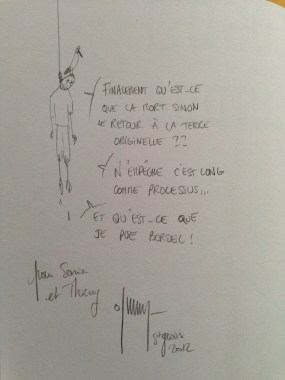 FINALEMENT QU'EST-CE
QUE LA MORT SINON
LE RETOUR À LA TERRE
ORIGINELLE ??
N'EMPÊCHE C'EST LONG
COMME PROCESSUS...
ET QU'EST-CE QUE
JE PUE BORDEL !
Pour Sonia
et Thierry
2012